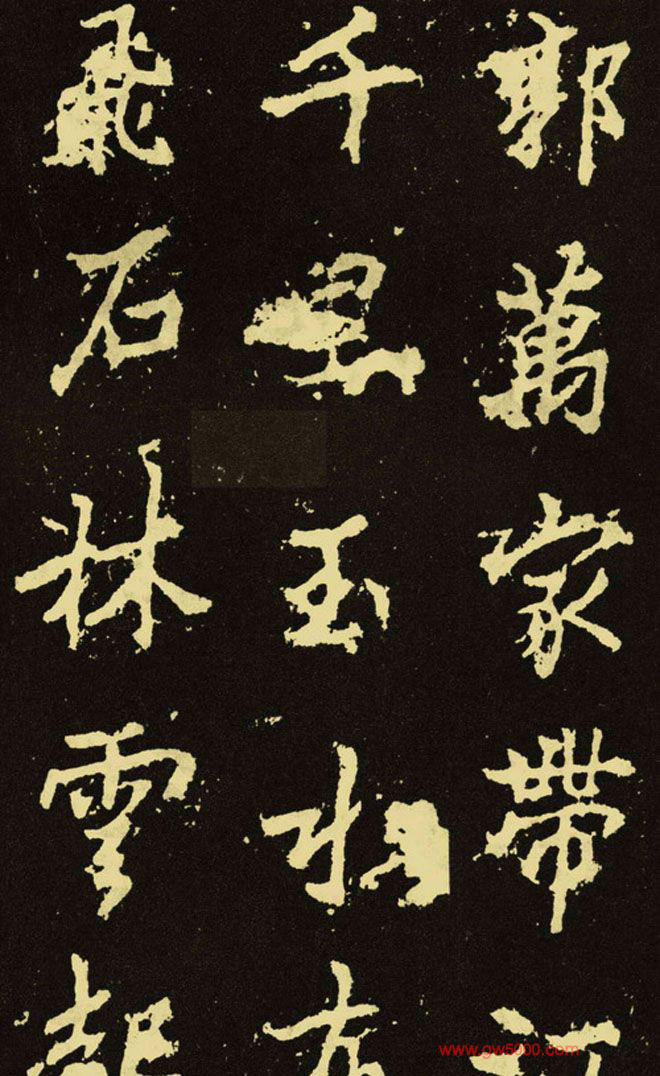 郭萬家帶
千玉水
飛石林雲
www.gw5000.com